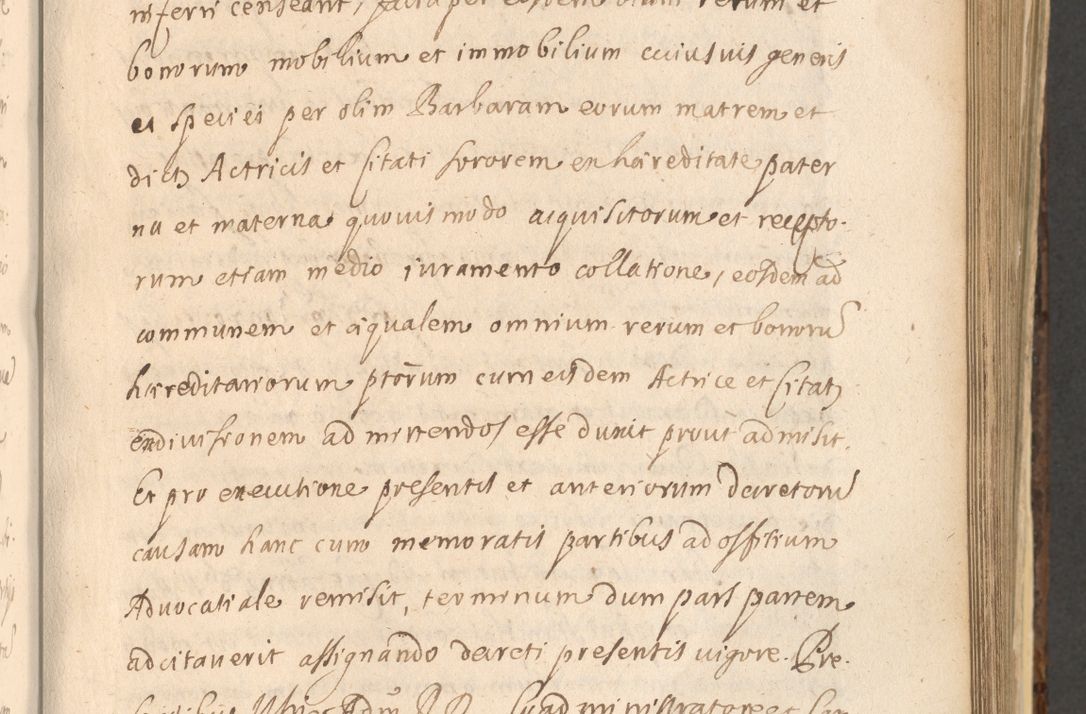 inferri censeant, facta per eosdem olim rerum et
bonorum mobilium et immobilium cuiusvis generis
et speciei per olim Barbaram eorum matrem et
dictæ Actricis et Citati sororem ex hæreditate pater
na et materna quovismodo acquisitorum et recepto-
rum etiam medio iuramento collatione, eosdem ad
communem et æqualem omnium rerum et bonorū
hæreditariorum ptōrum cum eisdem Actrice et Citati
exdivisionem admittendos esse duxit prout admisit.
Et pro executione presentis et anteriorum decretorū
causam hanc cum memoratis partibus ad offitium
Advocatiale remisit, terminum dum pars partem
adcitaverit assignando decreti presentis vigore. Pre-